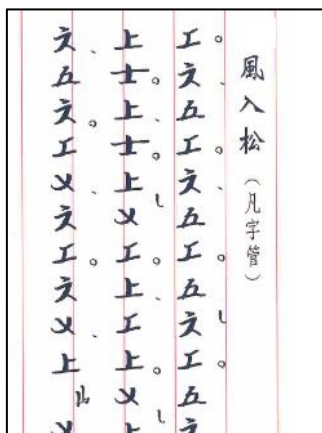 風入松（凡字管）
工。六、五工。六、五工。五六ㄴ工。五六
上士。上士。上ㄴ乂工。上、工上。乂ㄴ上
六、五六。工乂、六工。六乂、上乂